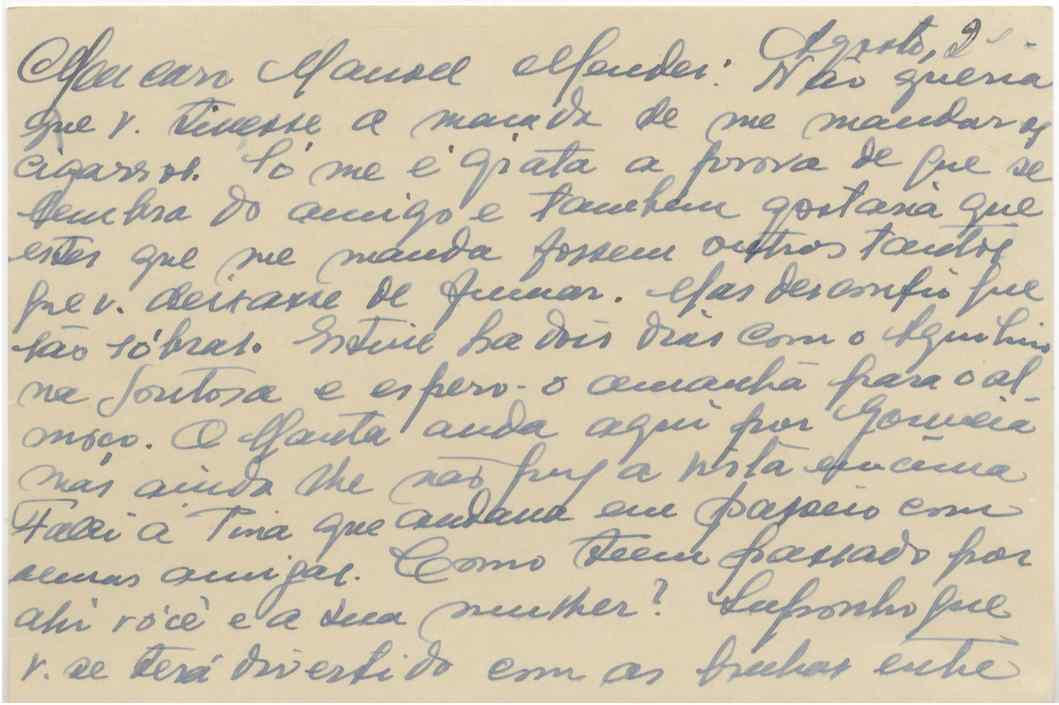 Agosto, 2
Meu caro Manoel Mendes: Não queria
que v. tivesse a maçada de me mandar os
cigarros. Só me é grata a prova de que se
lembra do amigo e tambem gostaria que
estes que me manda fossem outros tantos
que v. deixasse de fumar. Mas desconfio que
são sóbras. Estive ha dois dias com o Aquilino
na Soutosa e espero-o amanhã para o al
moço. O Manta anda aqui por Gouveia
mas ainda lhe não puz a vista em cima
Falei á Tina que andava em passeio com
umas amigas. Como teem passado por
ahi você e a sua mulher? Suponho que
v. se terá divertido com as bruhas entre